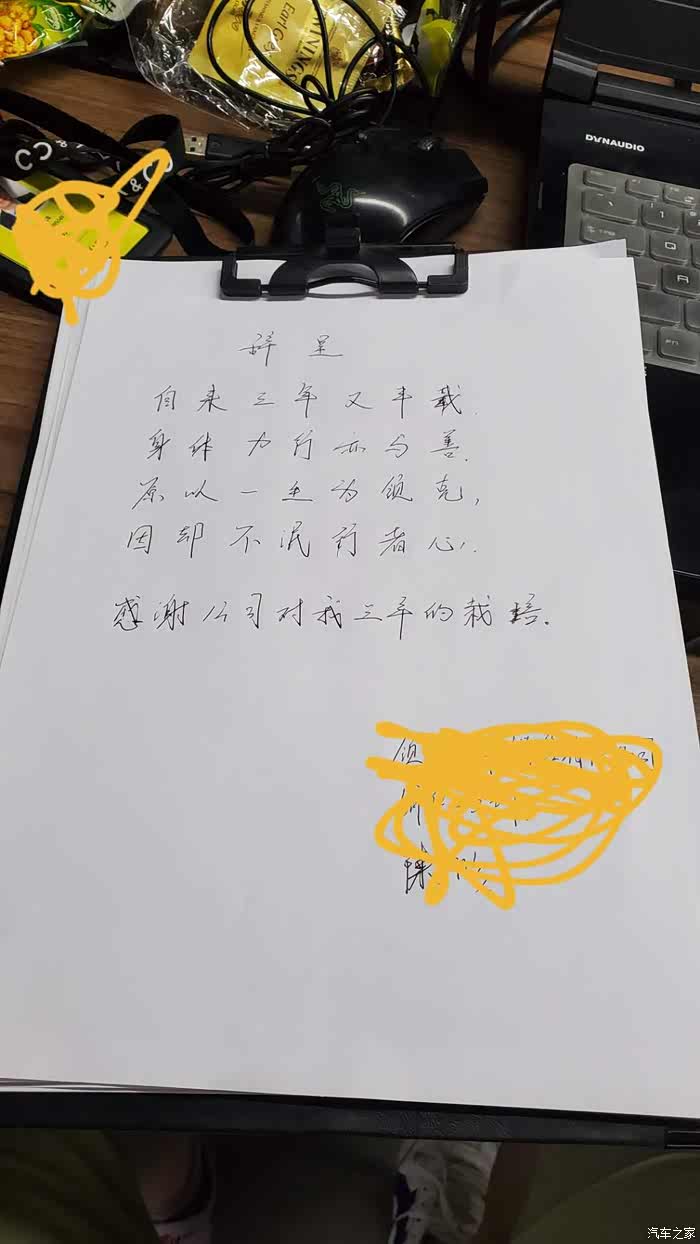 Earl Grey
TWININGS
DYNAUDIO
辞呈
自来三年又半载.
身体力行亦与善.
原以一生为领克,
因却不泯行者心.
感谢公司对我三年的栽培.
领
汽车之家